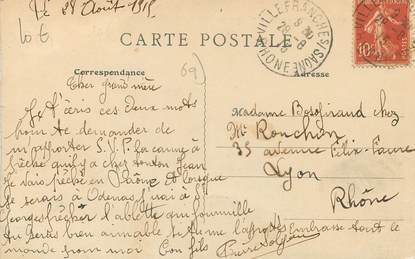 Le 28 Août 1915
Lot
CARTE POSTALE
VILLEFRANCHE S/SAONE
RHONE
Correspondance
69
Adresse
10
Cher grand mère
Je t'écris ces deux mots
pour te demander de
m'apporter S.V.P. la canne à
pêche qu'il y a chez tonton Jean
Je vais pêcher en Saône et lorsque
je serais à Odenas j'irai à St
Georges pêcher l'ablette qui fourmille
tu serais bien aimable de me l'apporter Embrasse tout le
monde pour moi Ton fils Pierre
Madame chez
Mr Ronchon
35 avenue Félix-Faure
Lyon
Rhône